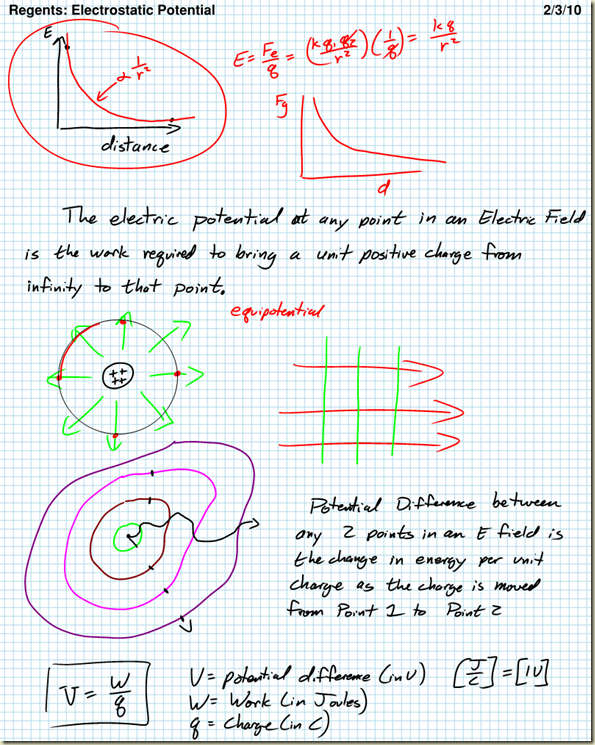 Regents: Electrostatic Potential 2/3/10
E
α 1/r²
distance
E = Fe/q = (kq₁q₂/r²)(1/q) = kq/r²
Fg
d
The electric potential at any point in an Electric Field
is the work required to bring a unit positive charge from
infinity to that point.
equipotential
++
++
Potential Difference between
any 2 points in an E field is
the change in energy per unit
charge as the charge is moved
from Point 1 to Point 2
V = W/q
V = potential difference (in V) [J/C] = [1V]
W = Work (in Joules)
q = charge (in C)